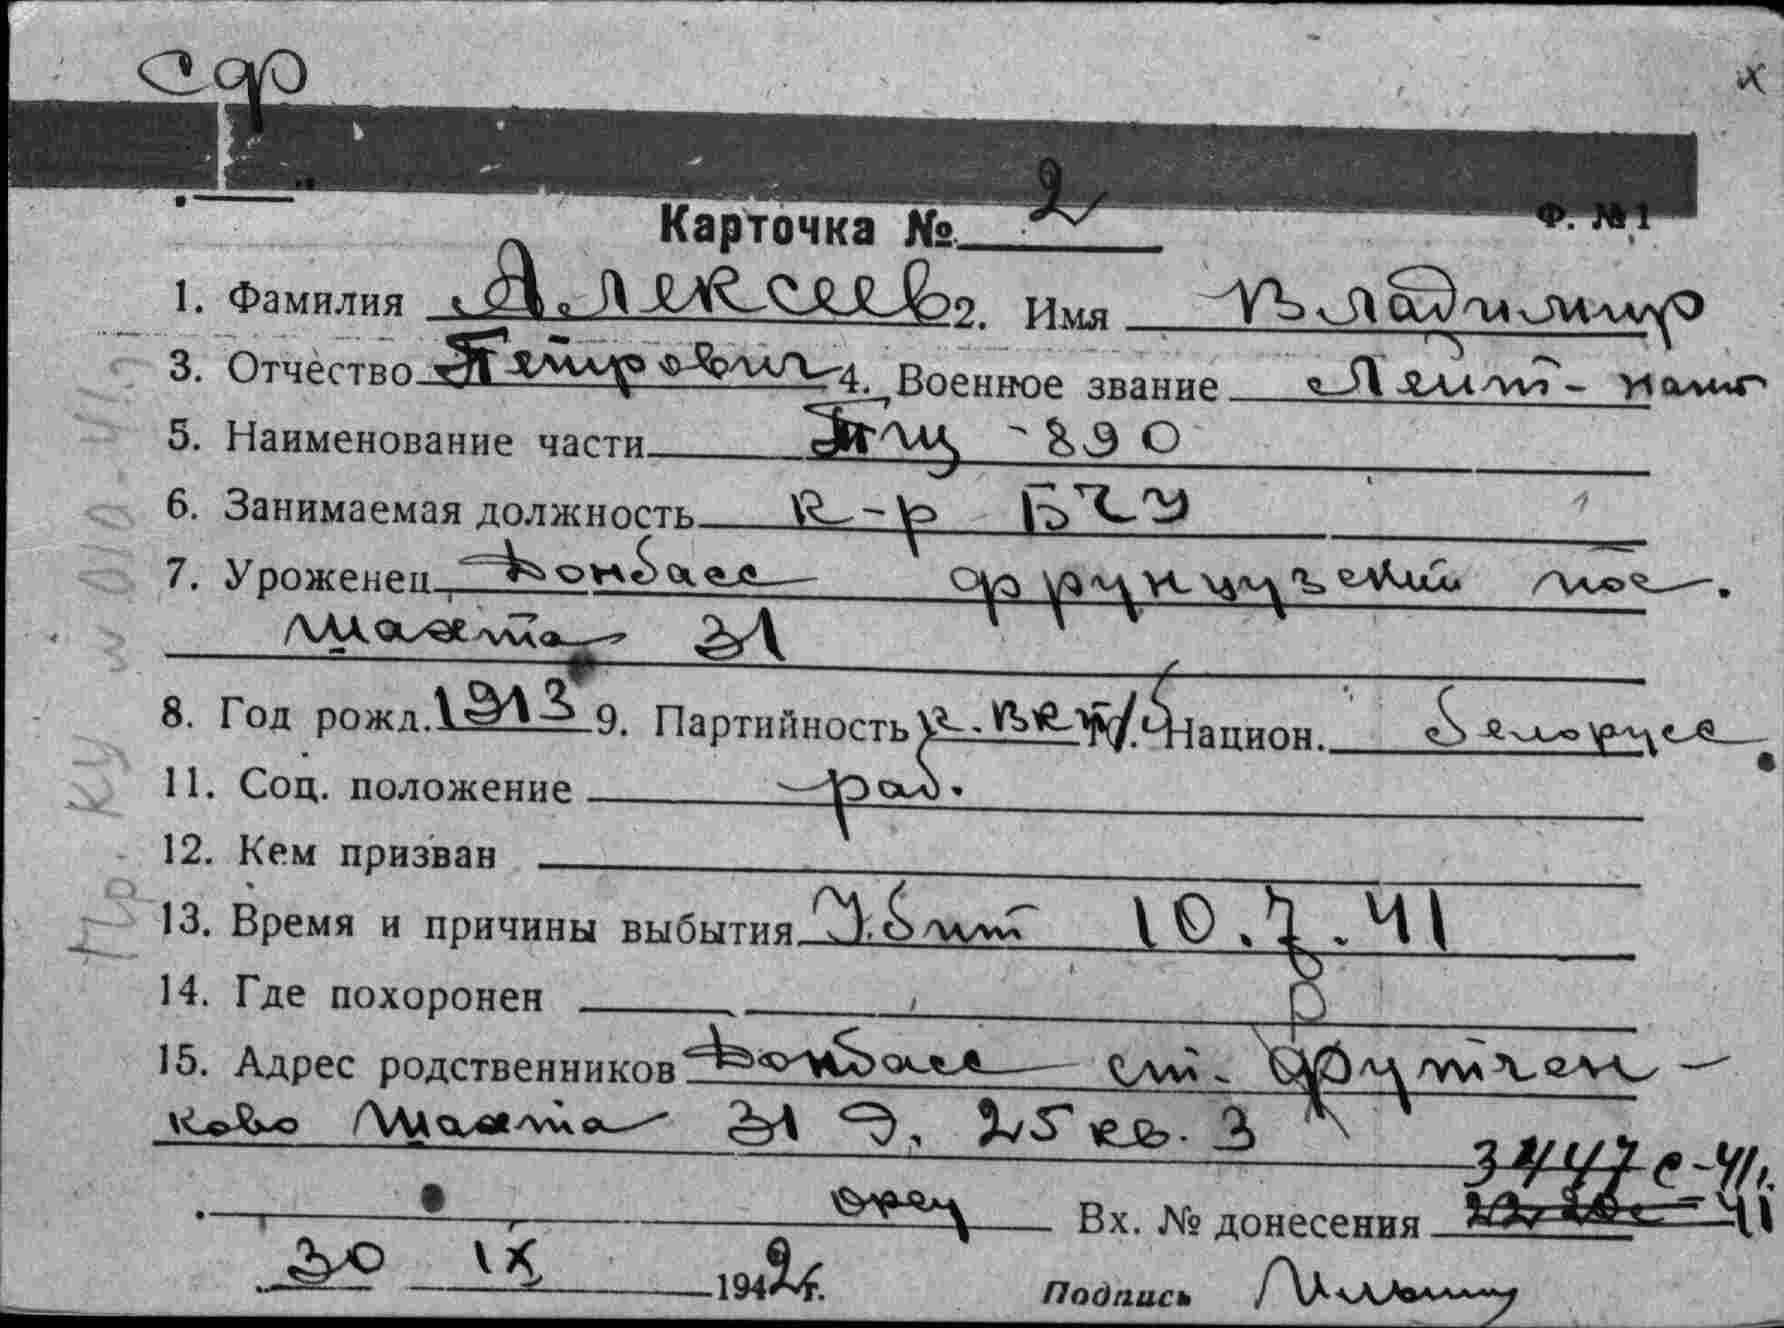 сф
х
Карточка № 2 Ф. № 1
1. Фамилия Алексеев 2. Имя Владимир
3. Отчество Петрович 4. Военное звание Лейт-нант
5. Наименование части ППЦ - 890
6. Занимаемая должность к-р БЧУ
7. Уроженец Донбасс Фрунцузский пос.
Шахта 31
8. Год рожд. 1913 9. Партийность к. ВКП/б Национ. белорусс
11. Соц. положение раб.
12. Кем призван
13. Время и причины выбытия Убит 10.7.41
14. Где похоронен
15. Адрес родственников Донбасс ст.
ково Шахта 31 Э. 25 кв. 3
3447с-41г.
отец Вх. № донесения
30 IX 1942г. Подпись